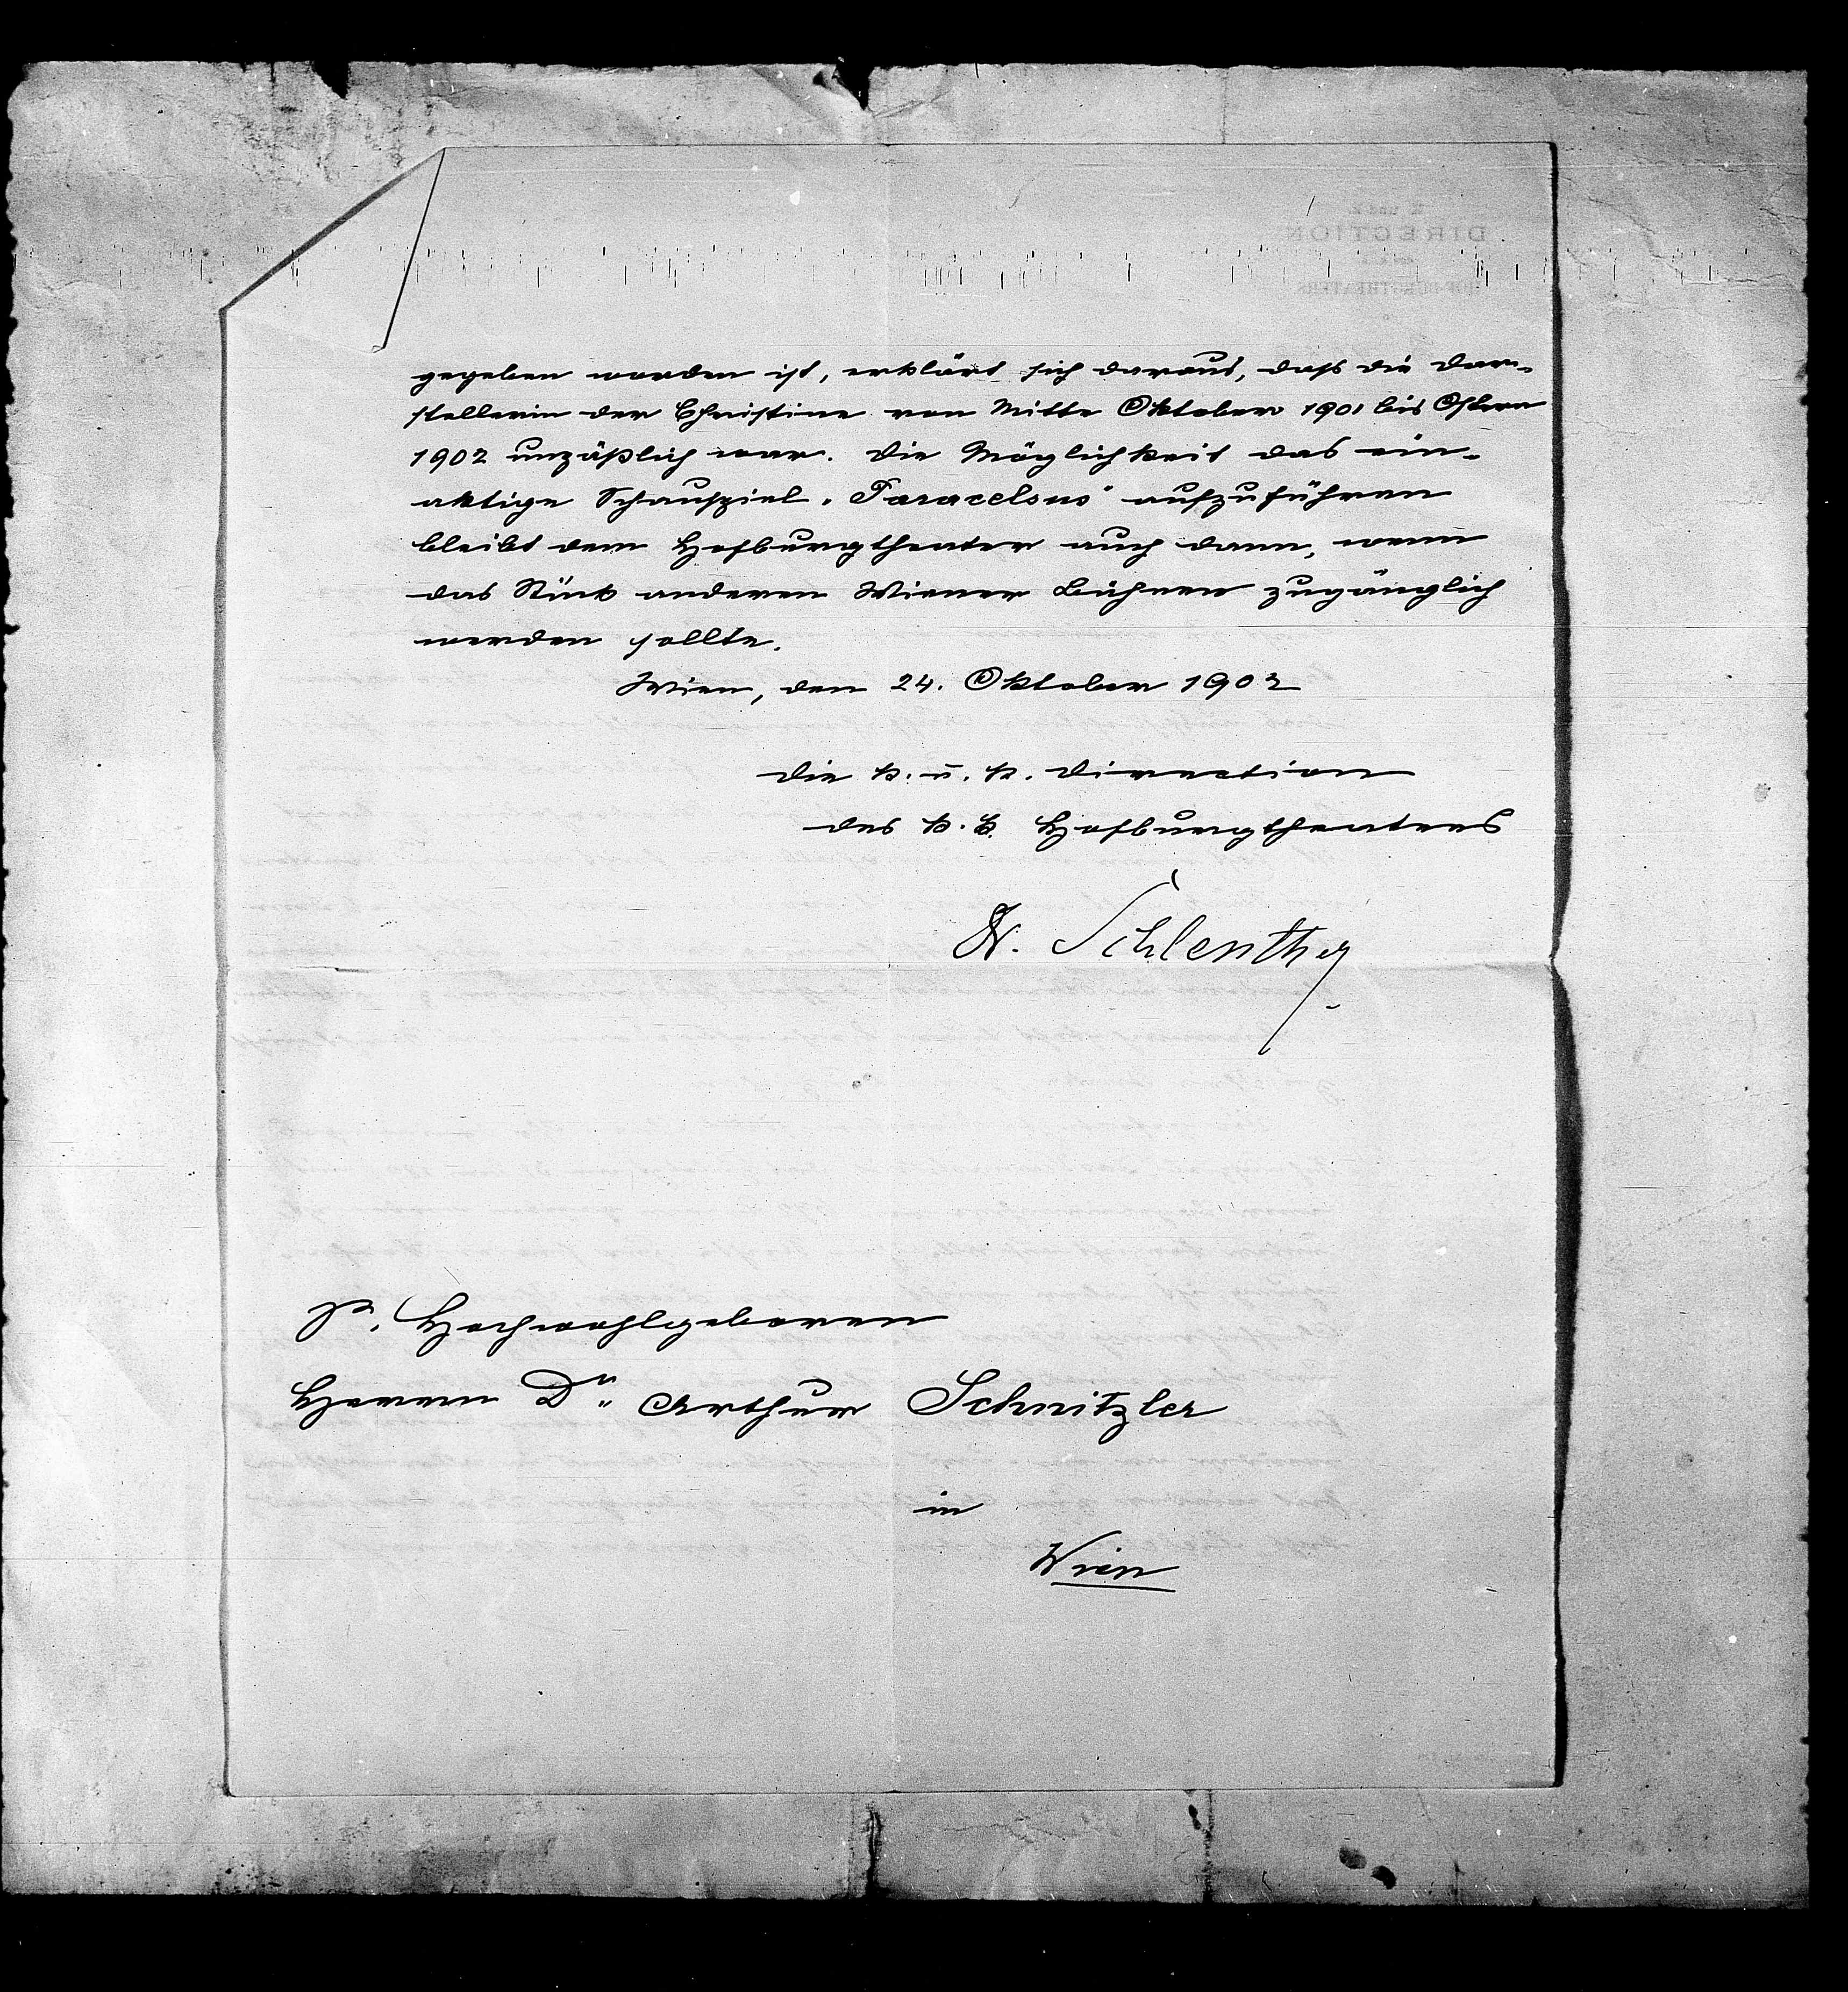 gegeben worden ist, erklärt sich daraus, daß die Dar-
stellerin der Christine von Mitte Oktober 1901 bis Ostern
1902 unpäßlich war. Die Möglichkeit das ein-
aktige Schauspiel „Paracelsus" aufzuführen
bleibt dem Hofburgtheater auch dann, wenn
das Stück anderen Wiener Bühnen zugänglich
werden sollte.
Wien, den 24. Oktober 1902
Die k. u. k. Direction
des k. k. Hofburgtheaters
Schlenther
Sr. Hochwohlgeboren
Herrn Dr. Arthur Schnitzler
in
Wien